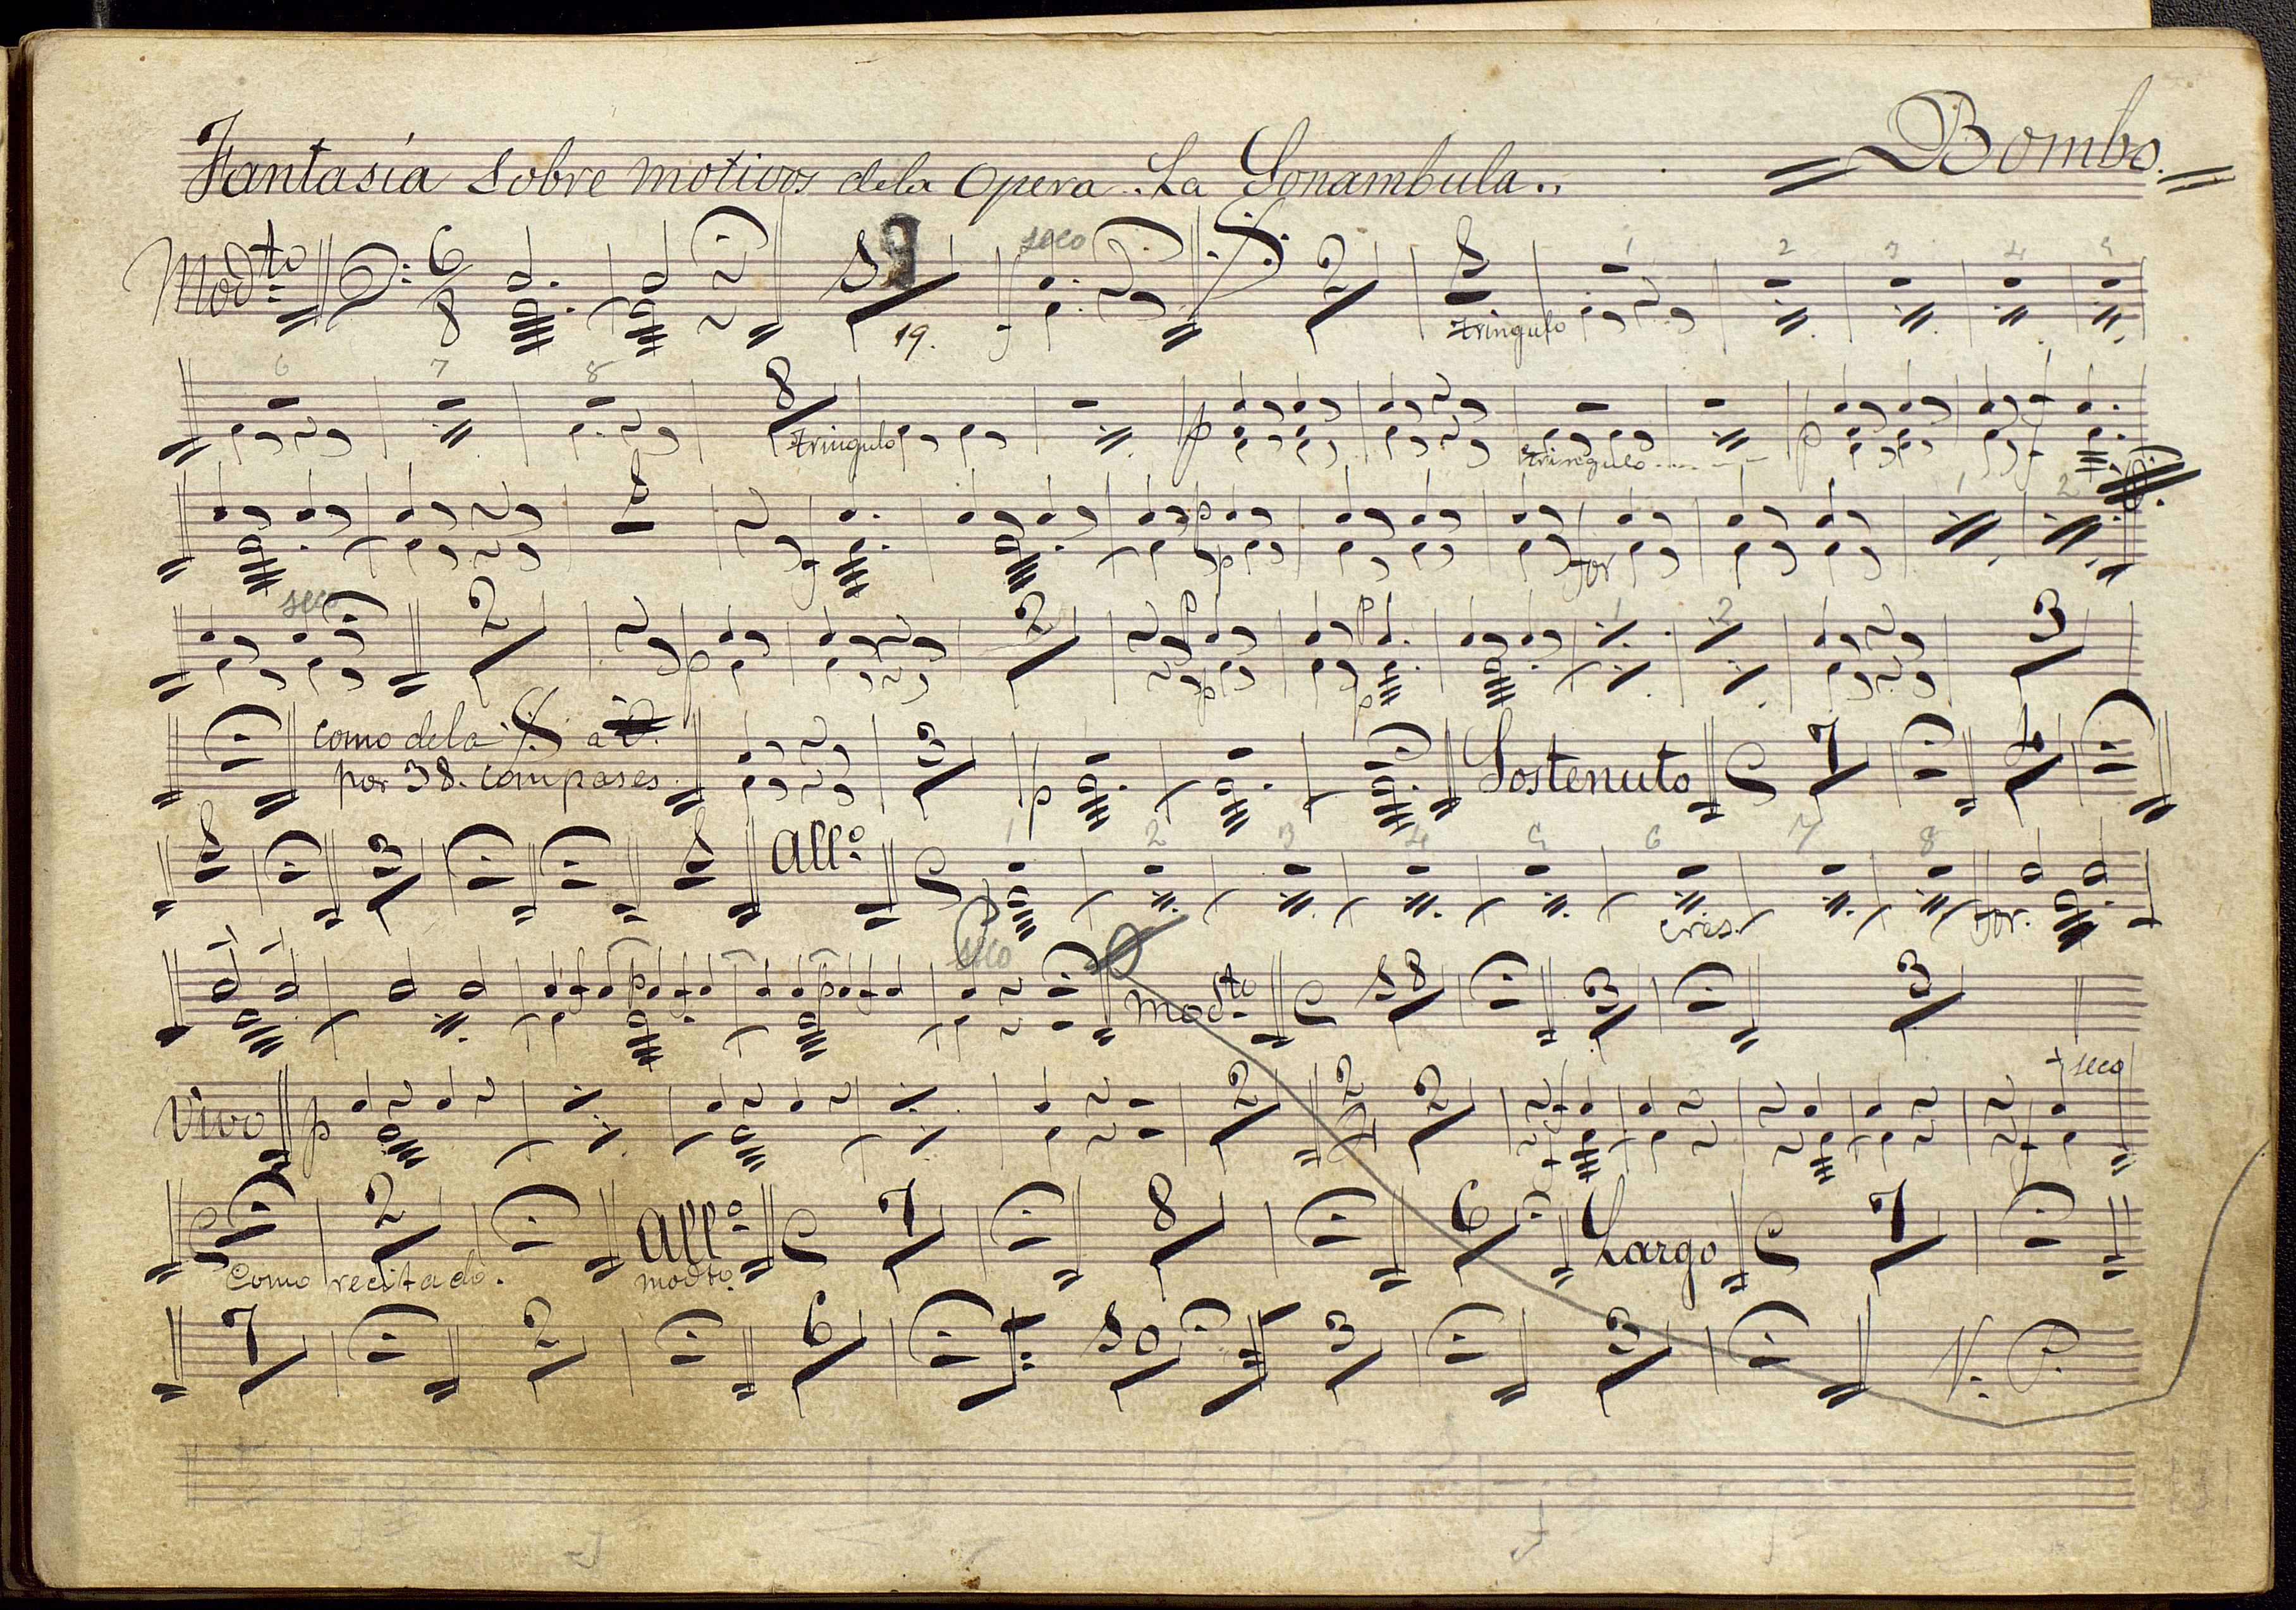 Fantasía sobre motivos dela Opera. La Sonambula.. = Bombo. =
Modto 6 8 19. seco 2 1 tringulo 1 2 3 4 5
6 7 8 8 tringulo p tringulo p f
f p p for 1 2
seco 2 p 2 p p p p 1 2 3
como dela a
por 38. compases. 3 p Sostenuto C 7 1
1 3 1 Allo. C 1 2 3 4 5 6 7 8 cres. for.
p p seco Modto. C 18 3 3
Vivo p 2 2 2 f f seco
C 2 Como recitado. Allo. modto. C 7 8 6 Largo C 7
7 2 6 10 3 3 V. P.